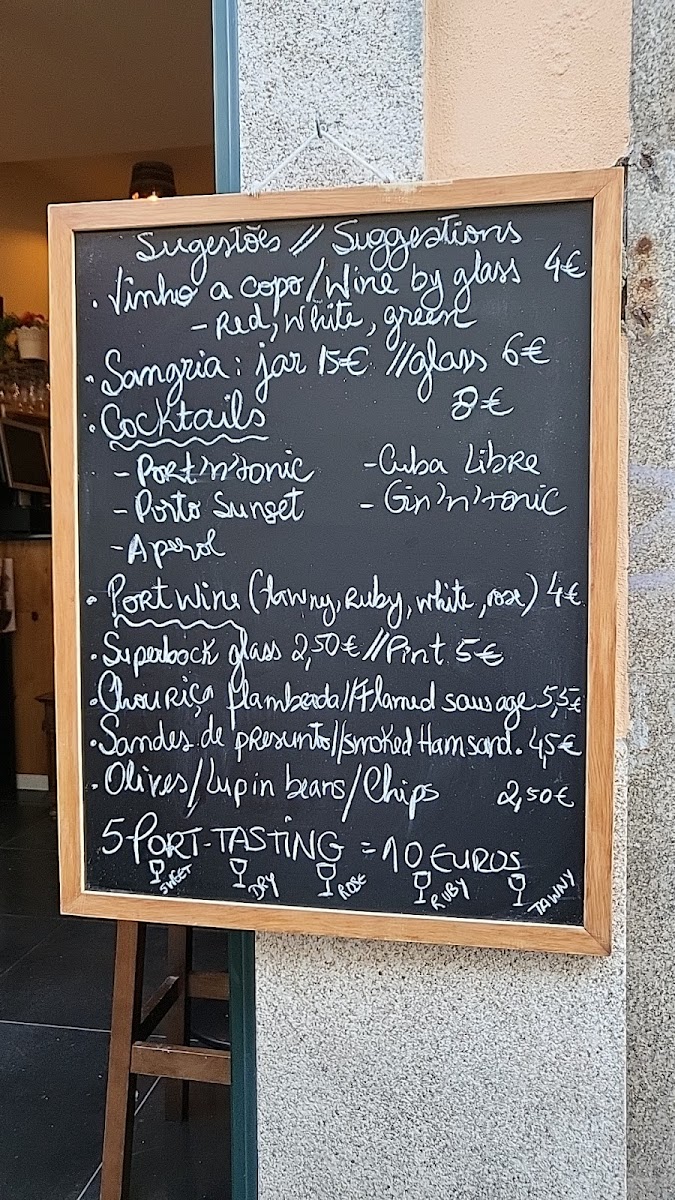 Sugestões // Suggestions
• Vinho a copo/Wine by glass 4€
- Red, White, green
• Sangria: jar 15€ // glass 6€
• Cocktails 8€
- Port'n'tonic - Cuba Libre
- Porto Sunset - Gin'n'tonic
- Aperol
• Port Wine (tawny, Ruby, white, rose) 4€
• Superbock glass 2,50€ // Pint 5€
• Chouriça flambeada // Flamed sausage 5,5€
• Sandes de presunto // smoked Ham sand. 4,5€
• Olives/Lupin beans/Chips 2,50€
5 PORT-TASTING = 10 EUROS
SWEET DRY ROSE RUBY TAWNY